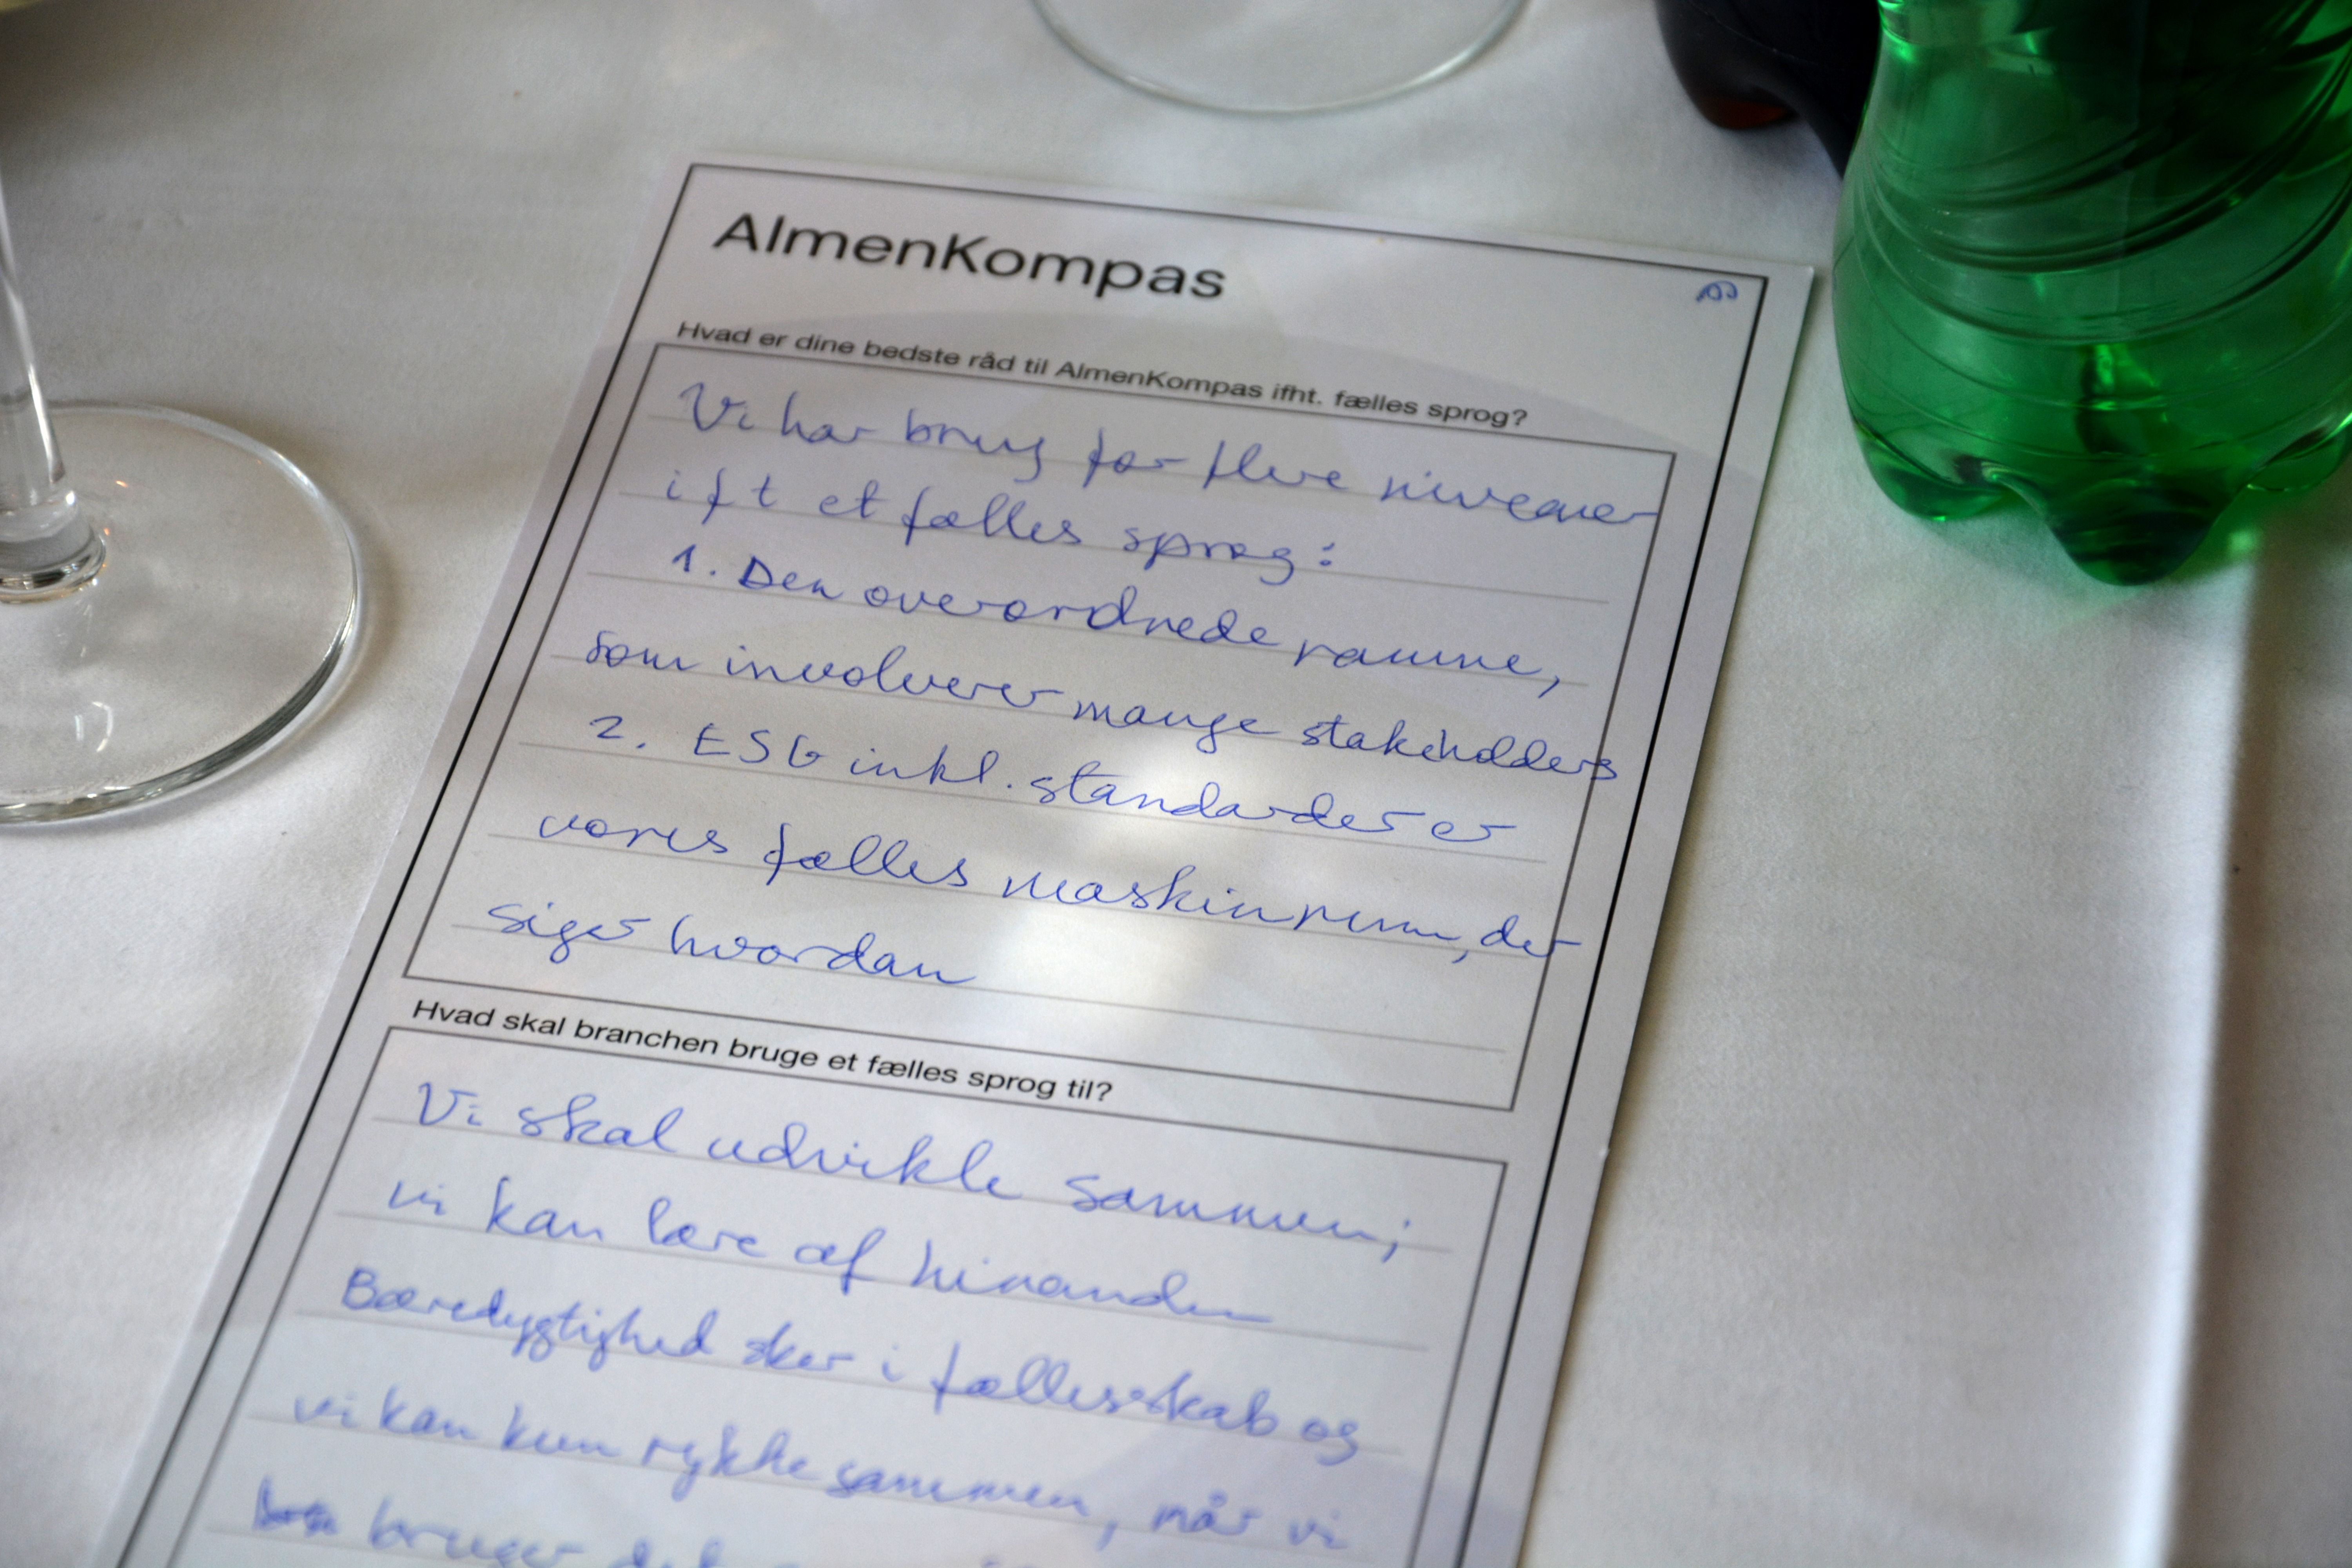 AlmenKompas
Hvad er dine bedste råd til AlmenKompas ifht. fælles sprog?
Vi har brug for flere niveauer
ift et fælles sprog:
1. Den overordnede ramme,
som involverer mange stakeholders
2. ESG inkl. standarder er
vores fælles maskinrum, der
siger hvordan
Hvad skal branchen bruge et fælles sprog til?
Vi skal udvikle sammen;
vi kan lære af hinanden
Bæredygtighed sker i fællesskab og
vi kan kun rykke sammen, når vi
bruger det